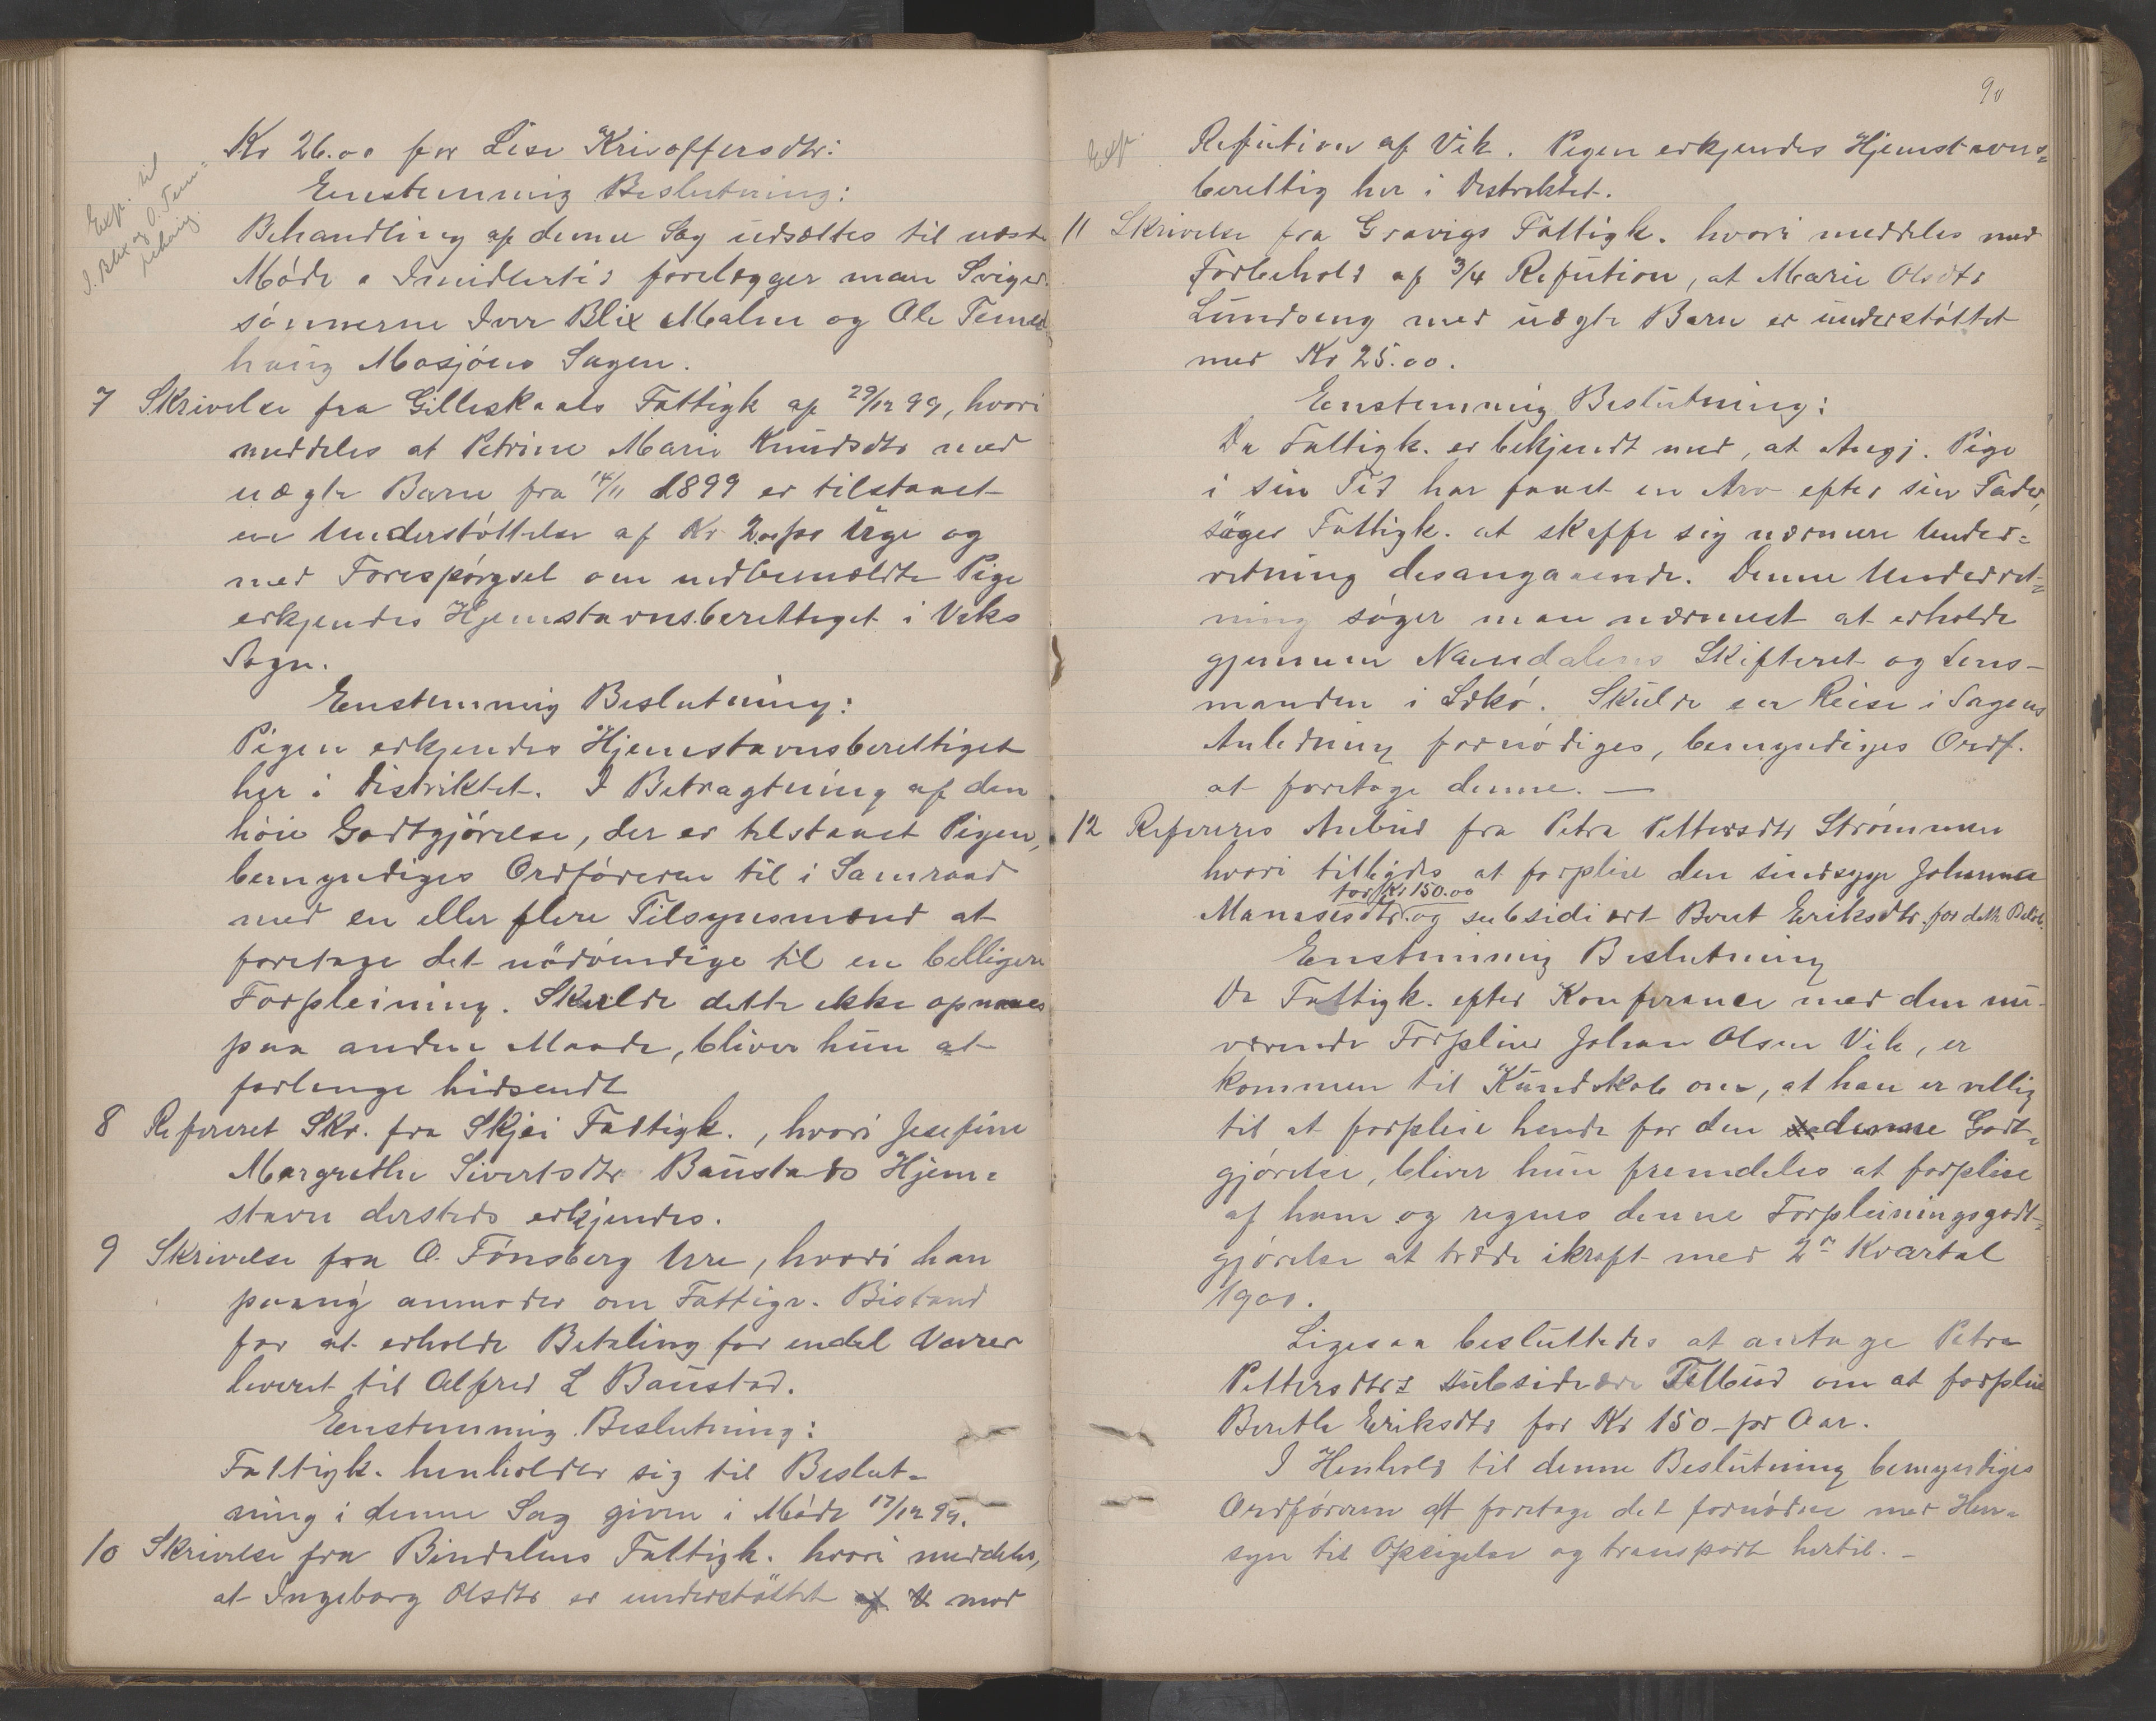 Exp. til
I. Blix og O. Tem=
Kr 26.00 for Lise Kristoffersdtr:
Enstemmig Beslutning:
Behandling af denne Sag udsættes til næste
Møde. Imidlertid forelægger man Sviger-
sønnerne Iver Blix Malm og Ole
Mosjøens Sagen.
7 Skrivelse fra Gilleskaals Fattigk af 29/12 99, hvori
meddeles at Petrine Marie Knudsdtr med
uægte Barn fra 14/11 1899 er tilstaaet
en Understøttelse af Kr 2.00 pr Uge og
med Forespørgsel om nedbemældte Pige
erkjendes Hjemstavnsberettiget i Viks
Sogn.
Enstemmig Beslutning:
Pigen erkjendes Hjemstavnsberettiget
her i Distriktet. I Betragtning af den
høie Godtgjørelse, der er tilstaaet Pigen,
bemyndiges Ordføreren til i Samraad
med en eller flere Tilsynsmænd at
foretage det nødvendige til en billigere
Forpleining. Skulde dette ikke opnaaes
paa anden Maade, bliver hun at
forlange hidsendt
8 Refereret Skr. fra Skjei Fattigk., hvori Josefine
Margrethe Sivertsdtr Baustads Hjem=
stavn dersteds erkjendes.
9 Skrivelse fra O. Fønsberg Ure, hvori han
paany anmoder om Fattigv. Bistand
for at erholde Betaling for endel Varer
leveret til Alfred L Baustad.
Enstemmig Beslutning:
Fattigk. henholder sig til Beslut-
ning i denne Sag given i Møde 17/12 99.
10 Skrivelse fra Bindalens Fattigk. hvori meddeles,
at Ingeborg Olsdtr er understøttet af mod
90
Exp.
Refution af Vik. Pigen erkjendes Hjemstavns=
berettig her i Distriktet.
11 Skrivelse fra Gravigs Fattigk. hvori meddeles med
Forbehold af 3/4 Refution, at Marie Olsdtr
Lundseng med uægte Barn er understøttet
med Kr 25.00.
Enstemmig Beslutning:
Da Fattigk. er bekjendt med, at Angj. Pige
i sin Tid har faaet en Arv efter sin Fader,
søger Fattigk. at skaffe sig nærmere Under=
retning desangaaende. Denne Underret=
ning søger man nærmest at erholde
gjennem Namdalens Skifteret og Lens-
manden i Lekø. Skulde en Reise i Sagens
Anledning fornødiges, bemyndiges Ordf.
at foretage denne. —
12 Refereres Anbud fra Petra Pettersdtr Strømmen
hvori tilbydes at forpleie den sindsyge Johanna
for Kr 150.00
Manasesdtr og subsidiært Beret Eriksdtr for dette Beløb.
Enstemmig Beslutning
Da Fattigk. efter Konferance med den nu-
værende Forpleier Johan Olsen Vik, er
kommen til Kundskab om, at han er villig
til at forpleie hende for den denne Godt=
gjørelse, bliver hun fremdeles at forpleie
af ham og regnes denne Forpleiningsgodt=
gjørelse at træde ikraft med 2n Kvartal
1900.
Ligesaa besluttedes at antage Petra
Pettersdtrs subsidiære Tilbud om at forpleie
Berethe Eriksdtr for Kr 150- pr Aar.
I Henhold til denne Beslutning bemyndiges
Ordføreren at foretage det fornødne med Hen=
syn til Opsigelse og transport hertil. -